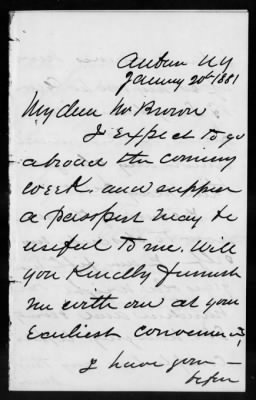 Auburn NY
January 20th 1881
My dear Mr Brown
I expect to go
abroad the coming
week and suppose
a passport may be
useful to me. Will
you Kindly furnish
me with one at your
Earliest convenience
I have gone
before